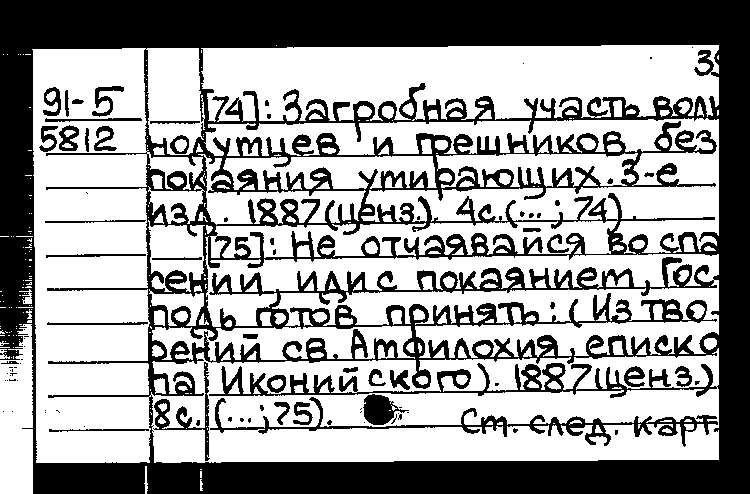 39
91-5 [74]: Загробная участь воль
5812 нодумцев и грешников, без
покаяния умирающих. 3-е
изд. 1887(ценз.). 4с.(...; 74).
[75]: Не отчаявайся во спа
сении, иди с покаянием, Гос-
подь готов принять: (Из тво-
рений св. Амфилохия, еписко
па Иконийского). 1887(ценз.)
8с. (...; 75).
См. след. карт.